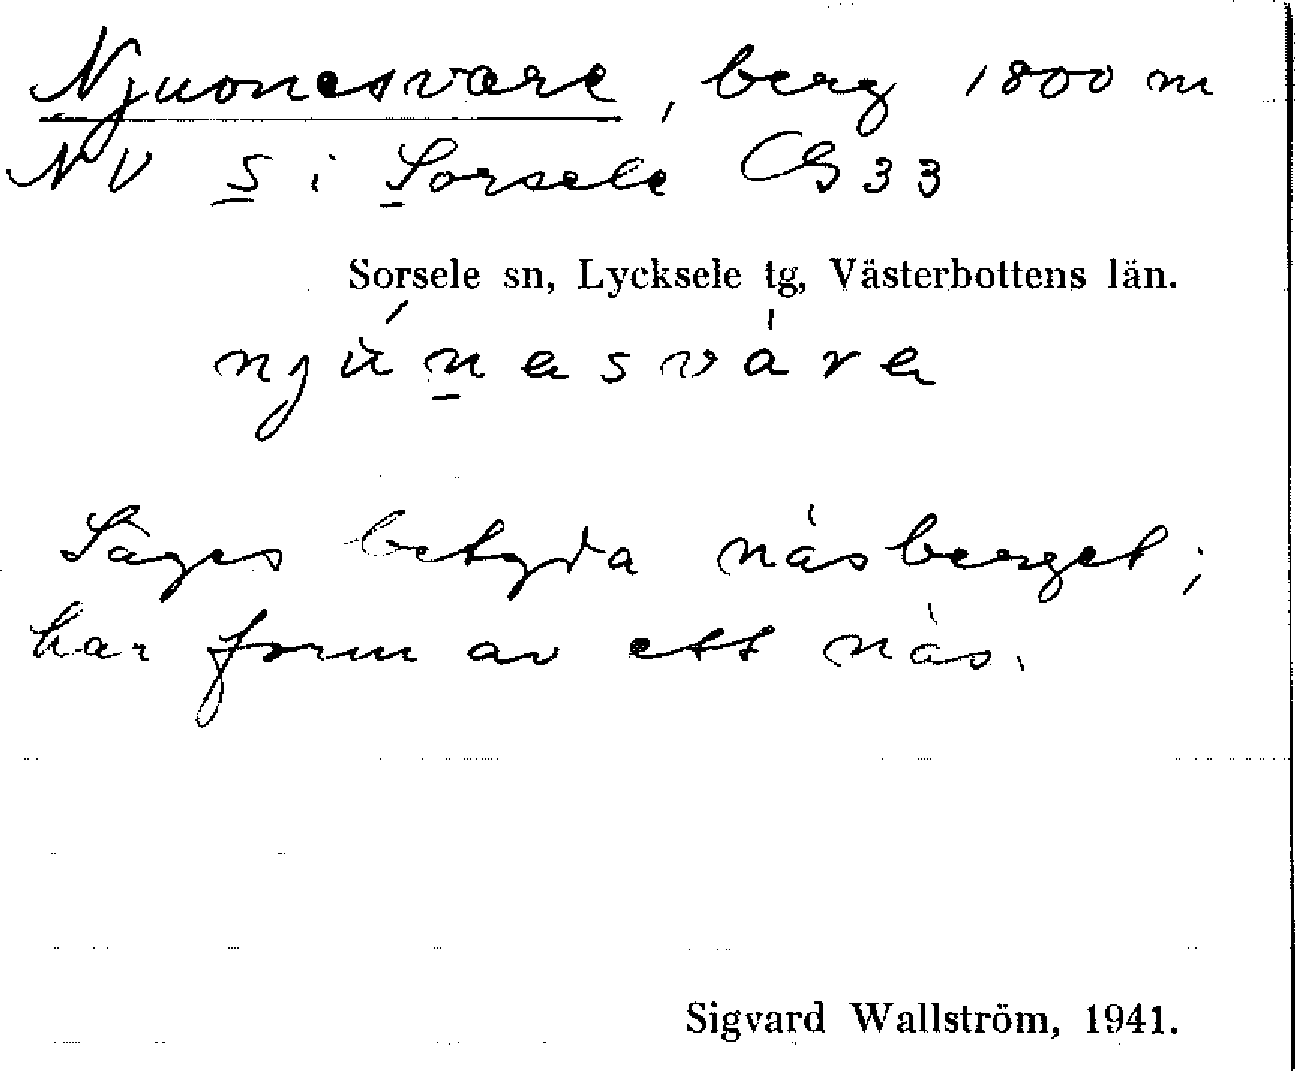 Njuonesvare, berg 1800 m
NV S i Sorsele CG 33
Sorsele sn, Lycksele tg, Västerbottens län.
njúnesváre
Säges betyda näsberget;
har form av ett näs.
Sigvard Wallström, 1941.